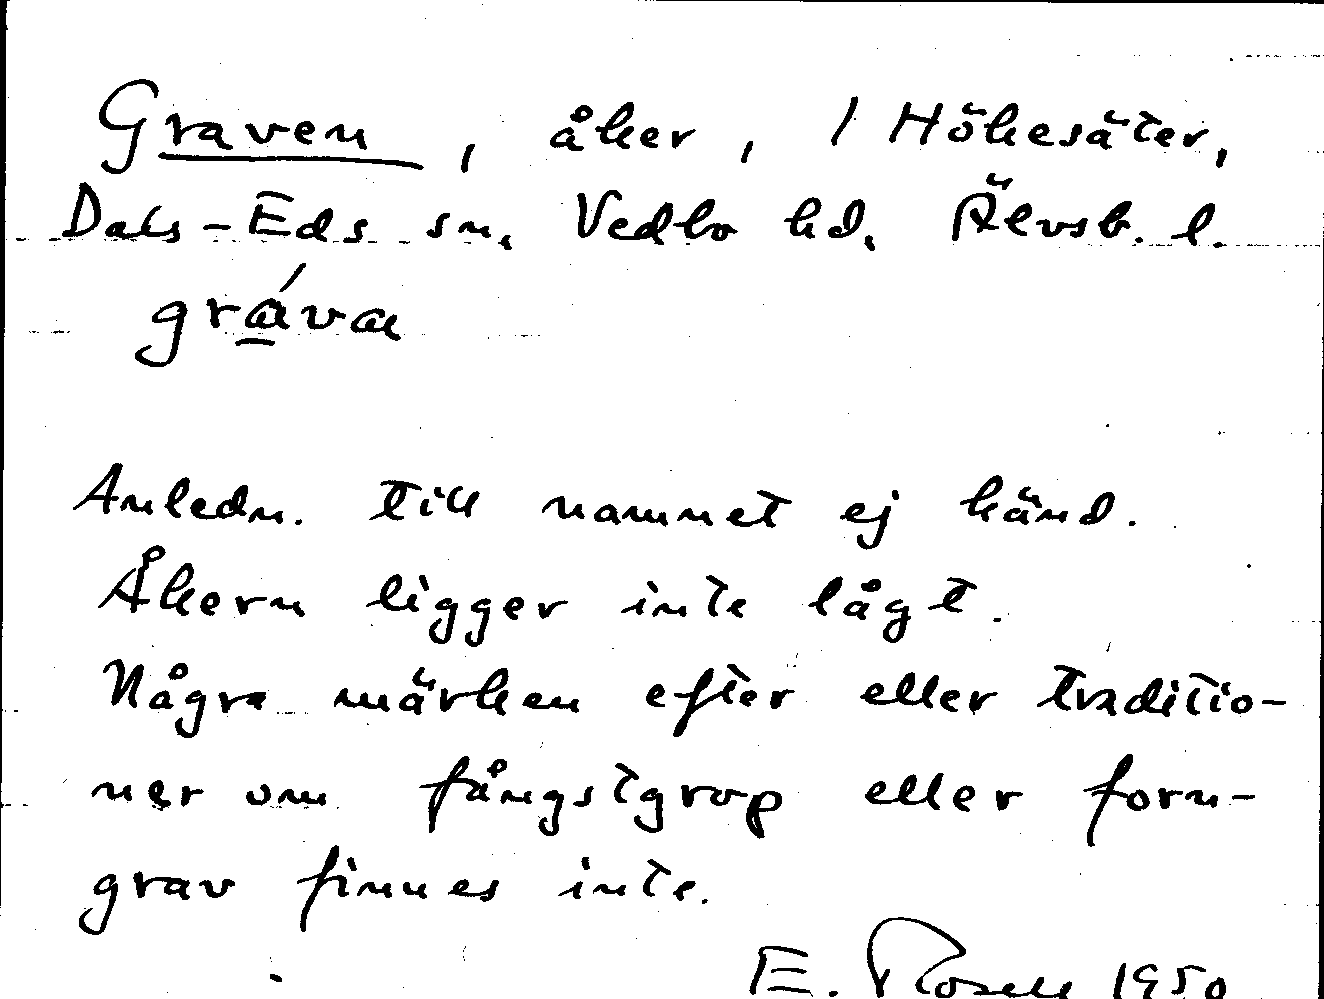 Graven, åker, 1 Hökesäter,
Dals-Eds sn, Vedbo hd, Älvsb. l.
gráva
Anledn. till namnet ej känd.
Åkern ligger inte lågt.
Några märken efter eller traditio-
ner om fångstgrop eller forn-
grav finnes inte.
E. Rosell 1950